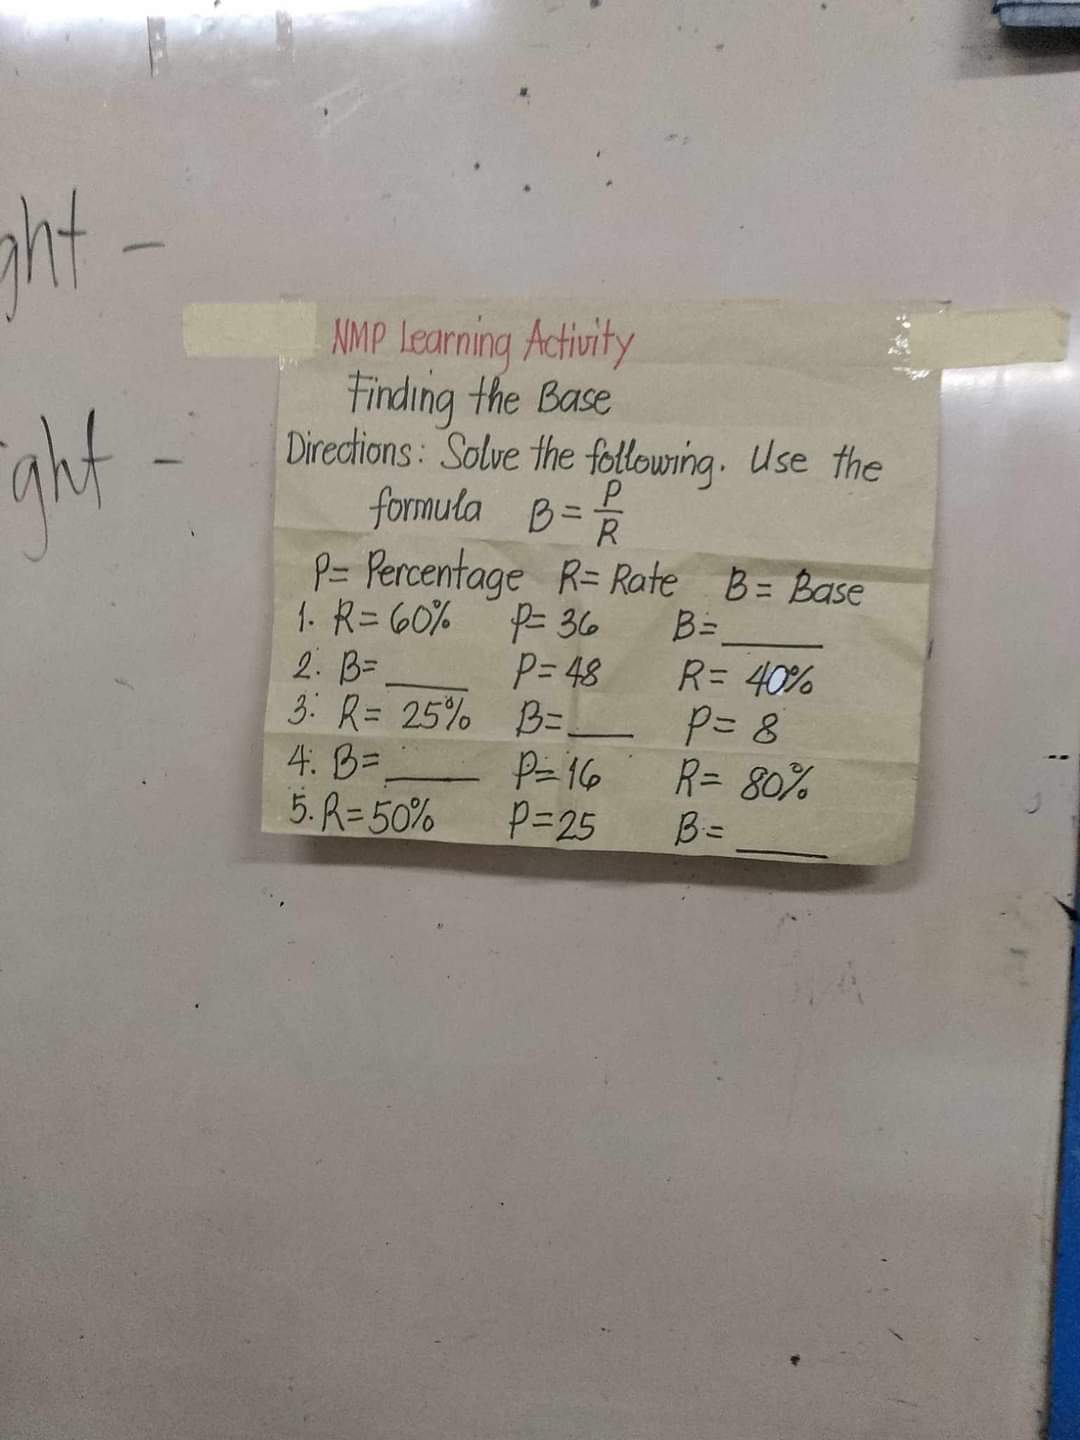 ght -
ight -
NMP Learning Activity
Finding the Base
Directions: Solve the following. Use the
formula B = P/R
P= Percentage R= Rate B= Base
1. R= 60% P= 36 B= ______
2. B= ______ P= 48 R= 40%
3. R= 25% B= ____ P= 8
4. B= ______ P= 16 R= 80%
5. R= 50% P= 25 B= ______